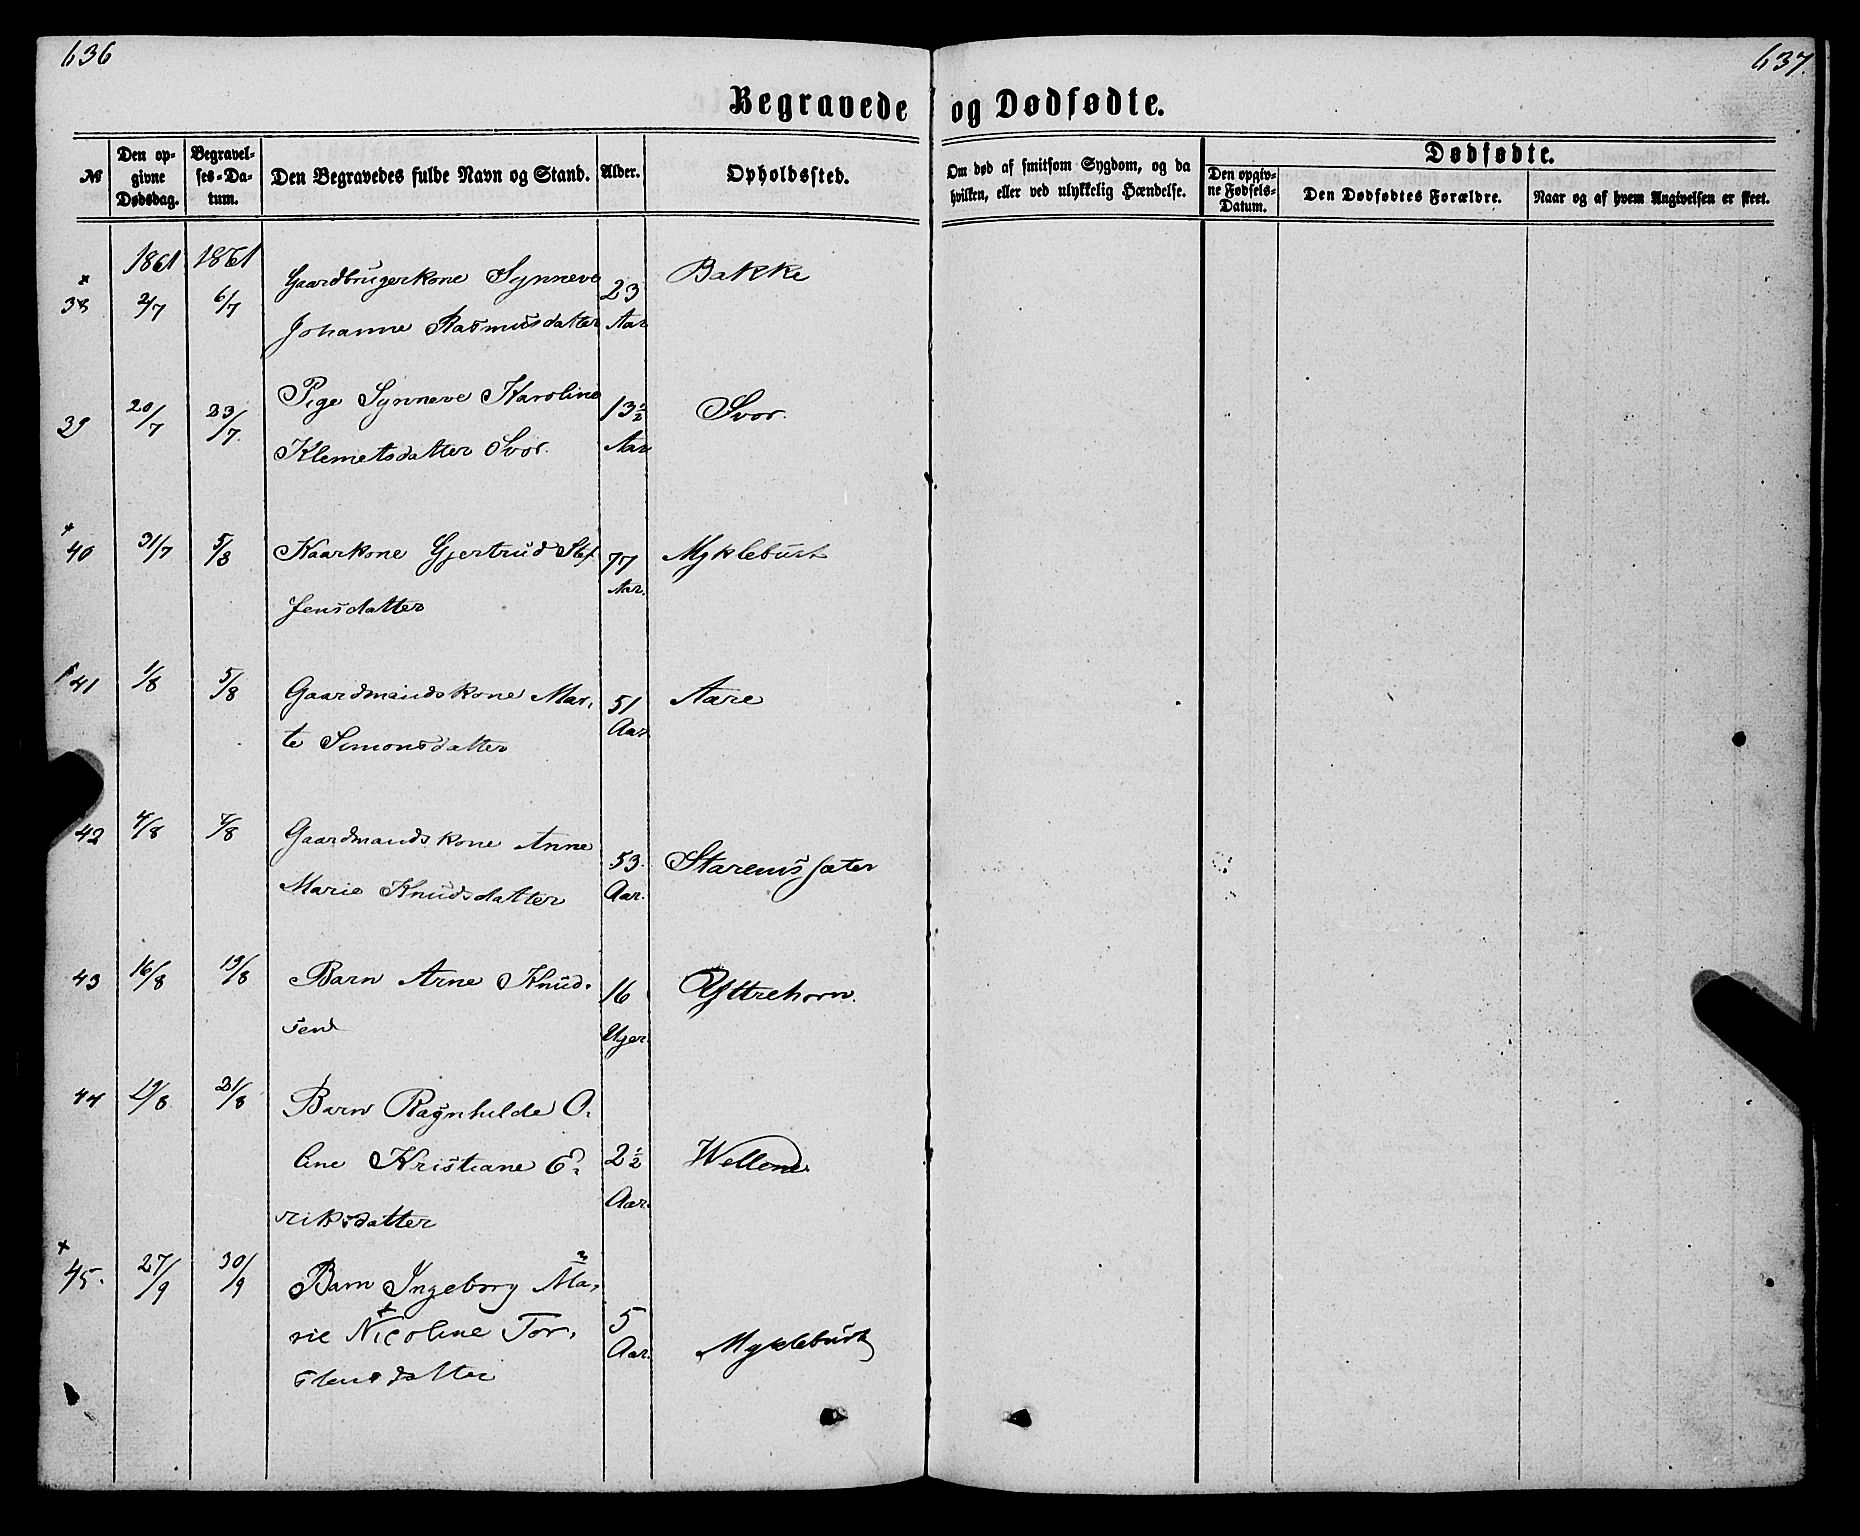 636
637.
Begravede og Dødfødte.
№
Den op-
givne
Dødsdag.
Begravel-
ses-Da-
tum.
Den Begravedes fulde Navn og Stand.
Alder.
Opholdssted.
Om død af smitsom Sygdom, og da
hvilken, eller ved ulykkelig Hændelse.
Dødfødte.
Den opgiv-
ne Fødsels-
Datum.
Den Dødfødtes Forældre.
Naar og af hvem Angivelsen er skeet.
1861 1861
38 2/7 6/7 Gaardbrugerkone Synneve 23 Bakke
Johanne Rasmusdatter Aar
39 20/7 23/7. Pige Synneve Karoline 13½ Svor.
Klemetsdatter Svor. Aar
40 31/7 5/8 Kaarkone Gjertrud Stef 77 Myklebust
fensdatter Aar.
41 1/8 5/8 Gaardmandskone Mar- 51 Aare
te Simonsdatter Aar.
42 4/8 7/8 Gaardmandskone Anne 53. Starenssæter
Marie Knudsdatter Aar.
43 16/8 19/8 Barn Arne Knud- 16 Yttrehorn.
sen Uger.
44 19/8 21/8 Barn Ragnhilde O-
line Kristiane E- 2½ Wellene
riksdatter Aar.
45. 27/9 30/9 Barn Ingeborg Ma-
rie Nicoline Tor- 5 Myklebust
stensdatter Aar.